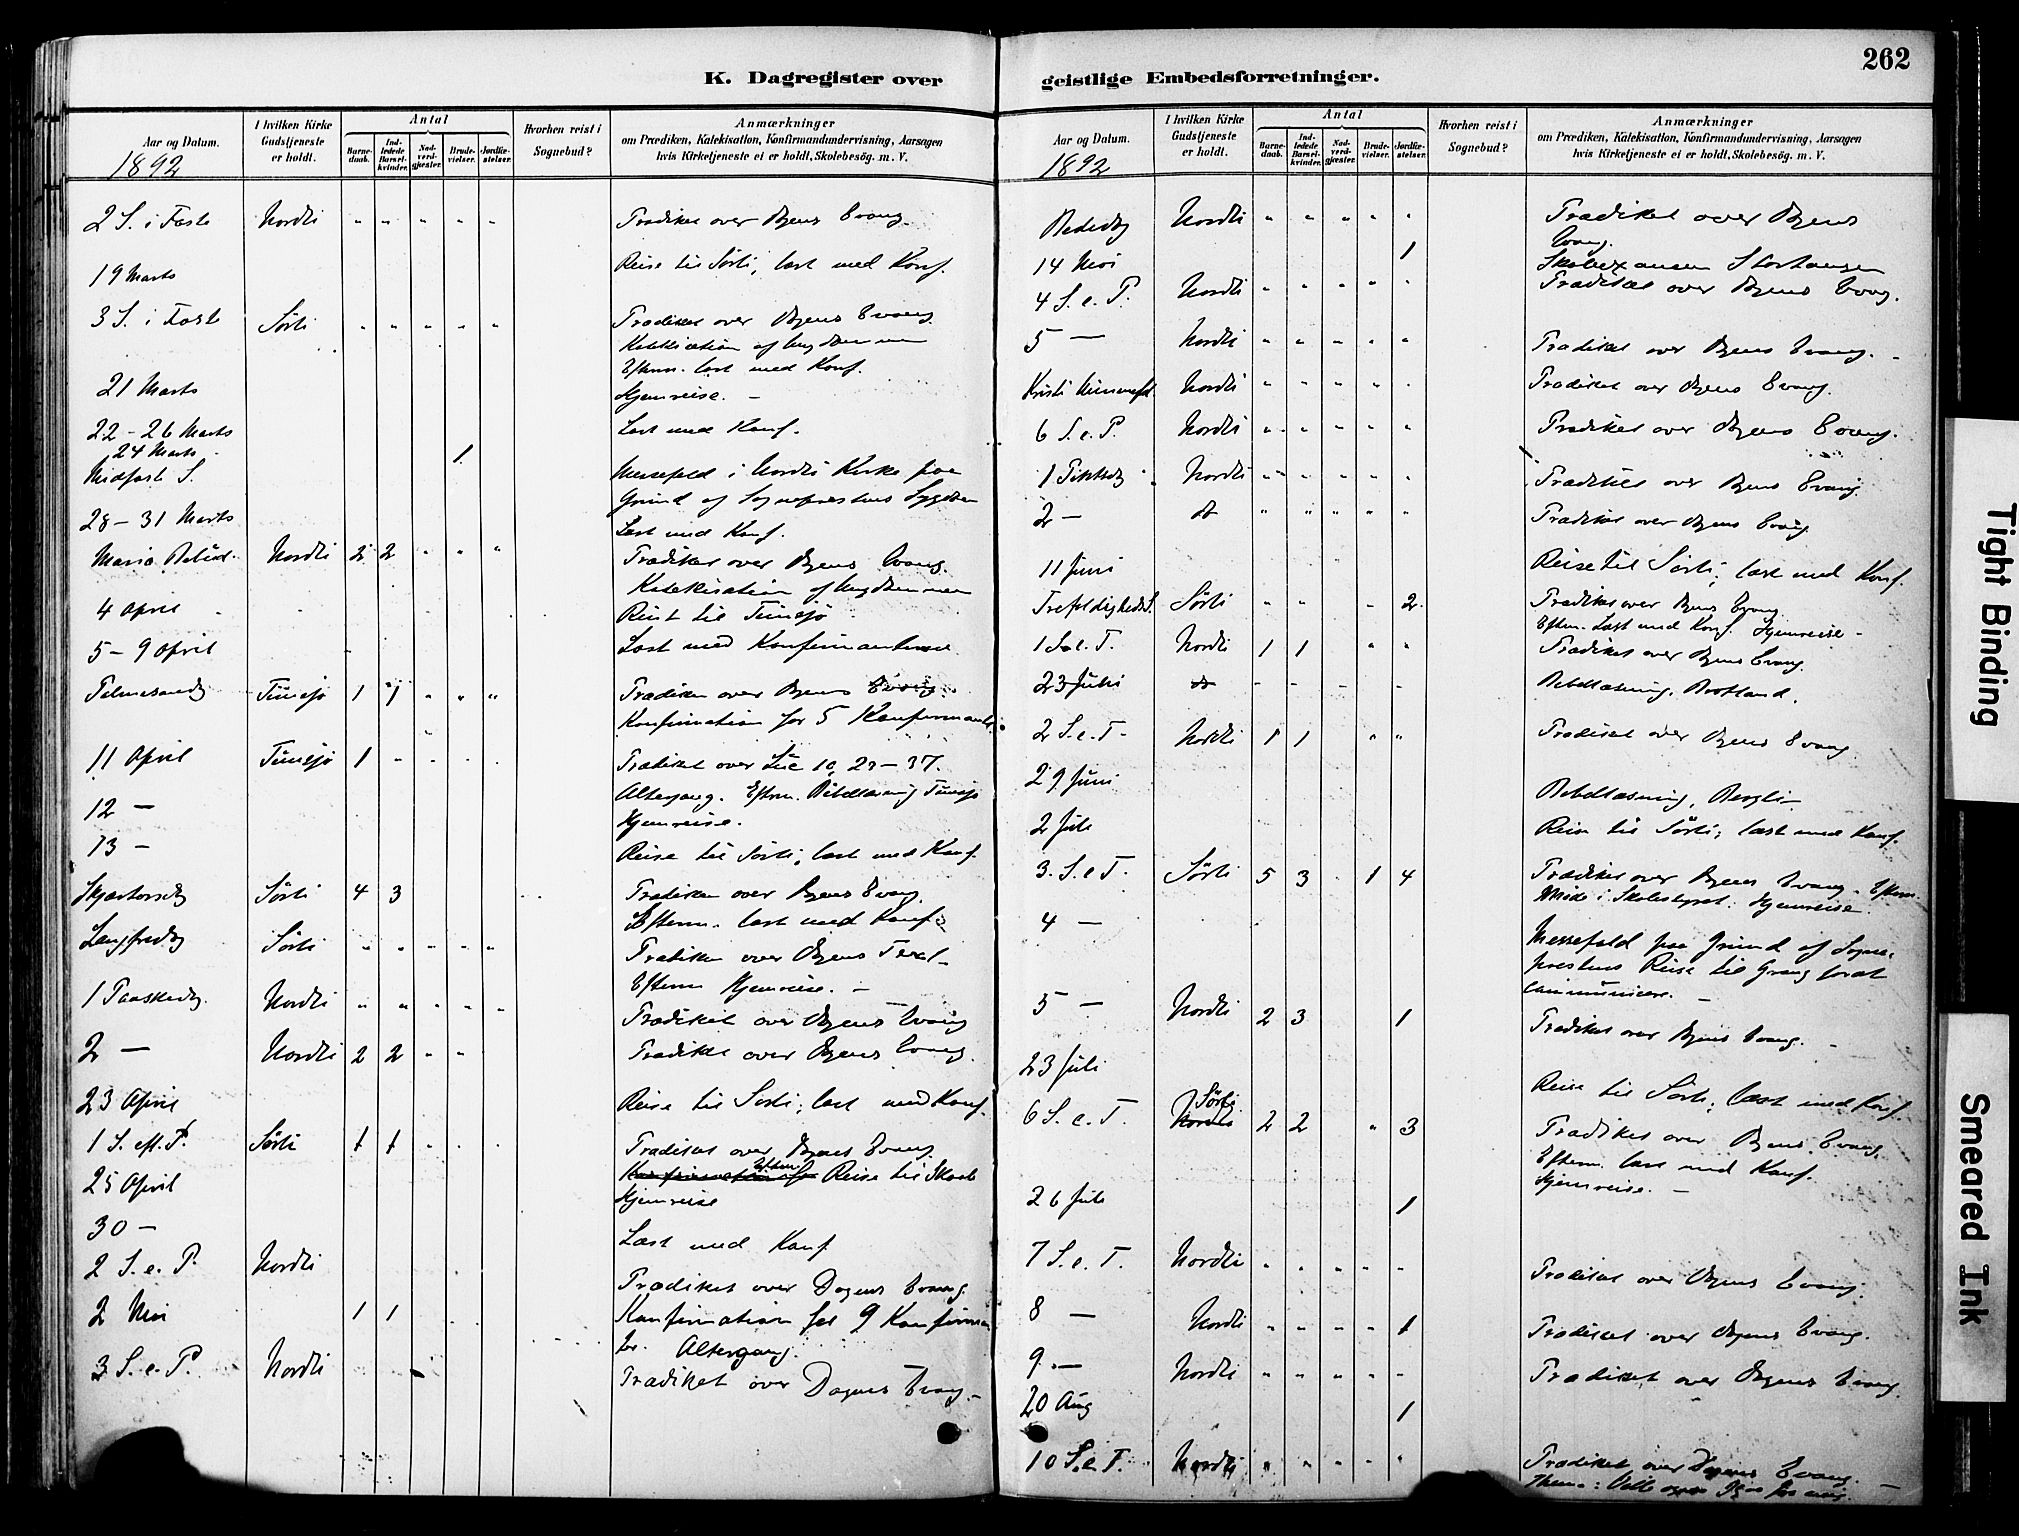 K. Dagregister over
Aar og Datum.
1892
I hvilken Kirke Gudstjeneste er holdt.
Antal
Barnedaab.
Indledede Barselkvinder.
Nadverdgjester.
Brudevielser.
Jordfæstelser.
Hvorhen reist i Sognebud?
Anmærkninger
om Prædiken, Katekisation, Konfirmandundervisning, Aarsagen
hvis Kirketjeneste ei er holdt, Skolebesög. m. V.
2 S. i Faste Nordli " " " " " Prædiket over Dagens Evang.
19 Marts Reise til Sörli, læst med Konf.
3 S. i Faste Sörli " " " " " Prædiket over Dagens Evang.
Katekisation af Ungdommen
Efterm. læst med Konf.
21 Marts Hjemreise. –
22 – 26 Marts Læst med Konf.
24 Marts 1
Midfaste S. Messefald i Nordli Kirke paa
Grund af Sognepræstens Sygdom
28 – 31 Marts Læst med Konf.
Maria Bebud. Nordli 2 2 " " " Prædiket over Dagens Evang.
Katekisation af Ungdommen
4 April Reist til Tunsjø
5 – 9 April Læst med Konfirmanterne
Palmesøndag Tunsjø 1 1 " " " Prædiken over Dagens Evang.
Konfirmation for 5 Konfirmanter
11 April Tunsjø 1 - - - - Prædiket over Luc 10, 23 – 37.
Altergang. Efterm. Bibellæsning Tunsjø
12 — Hjemreise.
13 – Reise til Sörli, læst med Konf.
Skjærtorsdag Sörli 4 3 Prædiken over Dagens Evang.
Efterm. læst med Konf.
Langfredag Sörli " " " " " Prædiken over Dagens Text –
Efterm Hjemreise. –
1 Paaskedag Nordli " " " " " Prædiket over Dagens Evang
2 — Nordli 2 2 " " Prædiket over Dagens Evang.
23 April Reise til Sörli, læst med Konf.
1 S. eft. P. Sörli 1 1 " " " Prædiket over Dagens Evang.
Efterm. Reise til
25 April Hjemreise
30 – Læst med Konf
2 S. e. P. Nordli Prædiket over Dagens Evang.
2 Mai 1 1 Konfirmation for 9 Konfirman
ter. Altergang.
3 S. e. P. Nordli Prædiket over Dagens Evang. –
geistlige Embedsforretninger.
262
Aar og Datum.
1892
I hvilken Kirke Gudstjeneste er holdt.
Antal
Barnedaab.
Indledede Barselkvinder.
Nadverdgjester.
Brudevielser.
Jordfæstelser.
Hvorhen reist i Sognebud?
Anmærkninger
om Prædiken, Katekisation, Konfirmandundervisning, Aarsagen
hvis Kirketjeneste ei er holdt, Skolebesög. m. V.
Bededag Nordli " " " " " Prædiket over Dagens
Evang.
14 Mai 1 Skoleexamen
4 S. e. P. Nordli " " " " " Prædiket over Dagens Evang.
5 — Nordli " " " " " Prædiket over Dagens Evang. –
Kristi Himmelf. Nordli " " " " " Prædiket over Dagens Evang.
6 S. e. P. Nordli " " " " " Prædiket over Dagens Evang.
1 Pinsedag Nordli " " " " " Prædiket over Dagens Evang.
2 — do " " " " " Prædiket over Dagens Evang
11 Juni Reise til Sörli, læst med Konf.
Trefoldigheds S. Sörli " " " 2 Prædiket over Dagens Evang.
Efterm. Læst med Konf. Hjemreise –
1 S. e. T. Nordli 1 1 " " Prædiket over Dagens Evang.
23 Juni do - - - - Bibellæsning,
2 S. e. T. Nordli 1 1 " " Prædiket over Dagens Evang.
29 Juni Bibellæsning, Bergli –
2 Juli Reise til Sörli; læst med Konf.
3. S. e T. Sörli 5 3 1 4 Prædiket over Dagens Evang. – Efterm.
Møde i Skolestyret. Hjemreise.
4 — Messefald paa Grund af Sogne-
prestens Reise til Grong for at
communicere. –
5 — Nordli 2 3 1 Prædiket over Dagens Evang. –
23 Juli Reise til Sörli, læst med Konf.
Sörli
6 S. e. T Nordli 2 2 " 3 Prædiket over Dagens Evang.
Efterm. læst med Konf.
Hjemreise. –
26 Juli 1
7 S. e. T. Nordli " " " " " Prædiket over Dagens Evang.
8 — Nordli " " " " 1 Prædiket over Dagens Evang.
9 — Nordli " " " " " Prædiket over Dagens Evang
20 Aug 1
10 S. e T. Nordli " " " " " Prædiket over Dagens Evang. –
Tight Binding
Smeared Ink